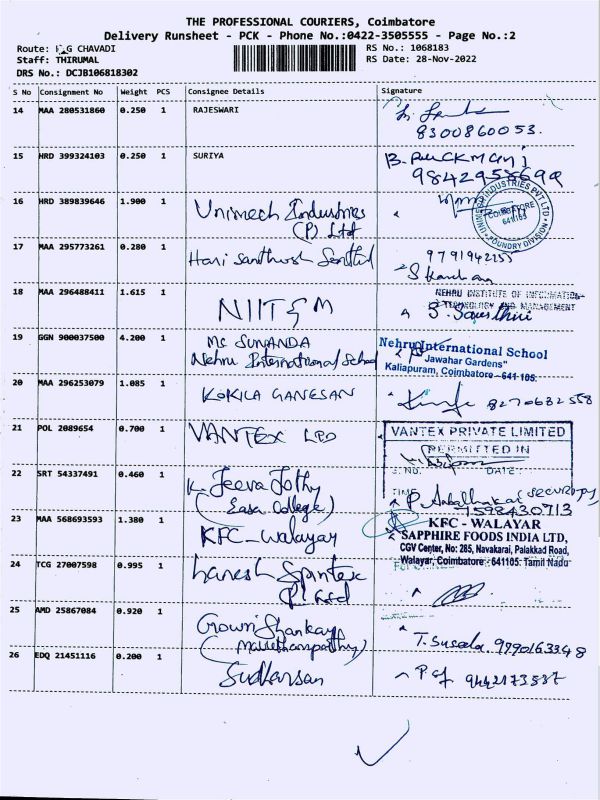 THE PROFESSIONAL COURIERS, Coimbatore
Delivery Runsheet - PCK - Phone No.:0422-3505555 - Page No.:2
Route: K G CHAVADI
RS No.: 1068183
Staff: THIRUMAL
RS Date: 28-Nov-2022
DRS No.: DCJB106818302
S No Consignment No Weight PCS Consignee Details Signature
14 MAA 280531860 0.250 1 RAJESWARI
8300860053.
15 HRD 399324103 0.250 1 SURIYA
16 HRD 389839646 1.900 1 Unimech Industries
(P) Ltd
INDUSTRIES PVT LTD
COIMBATORE
FOUNDRY DIVISION
17 MAA 295773261 0.280 1 Hari Santhosh Senthil
9791942155
18 MAA 296488411 1.615 1 NIIT & M
NEHRU INSTITUTE OF INFORMATION
TECHNOLOGY AND MANAGEMENT
19 GGN 900037500 4.200 1 MC SUNANDA
Nehru International School
Nehru International School
"Jawahar Gardens"
Kaliapuram, Coimbatore-641 105.
20 MAA 296253079 1.085 1 KOKILA GANESAN
8270682558
21 POL 2089654 0.700 1 VANTEX LTD
VANTEX PRIVATE LIMITED
PERMITTED IN
S.NO. DATE:
TIME
22 SRT 54337491 0.460 1 K. Jeeva Jothy
(Easa College)
(SECURITY)
23 MAA 568693593 1.380 1 KFC-Walayar
KFC - WALAYAR
SAPPHIRE FOODS INDIA LTD,
CGV Center, No: 285, Navakarai, Palakkad Road,
Walayar, Coimbatore - 641105. Tamil Nadu
24 TCG 27007598 0.995 1 Spintex
25 AMD 25867084 0.920 1 Gowri Shankar
T. Suseela. 9790163348
26 EDQ 21451116 0.200 1 Sudharsan
9442173537